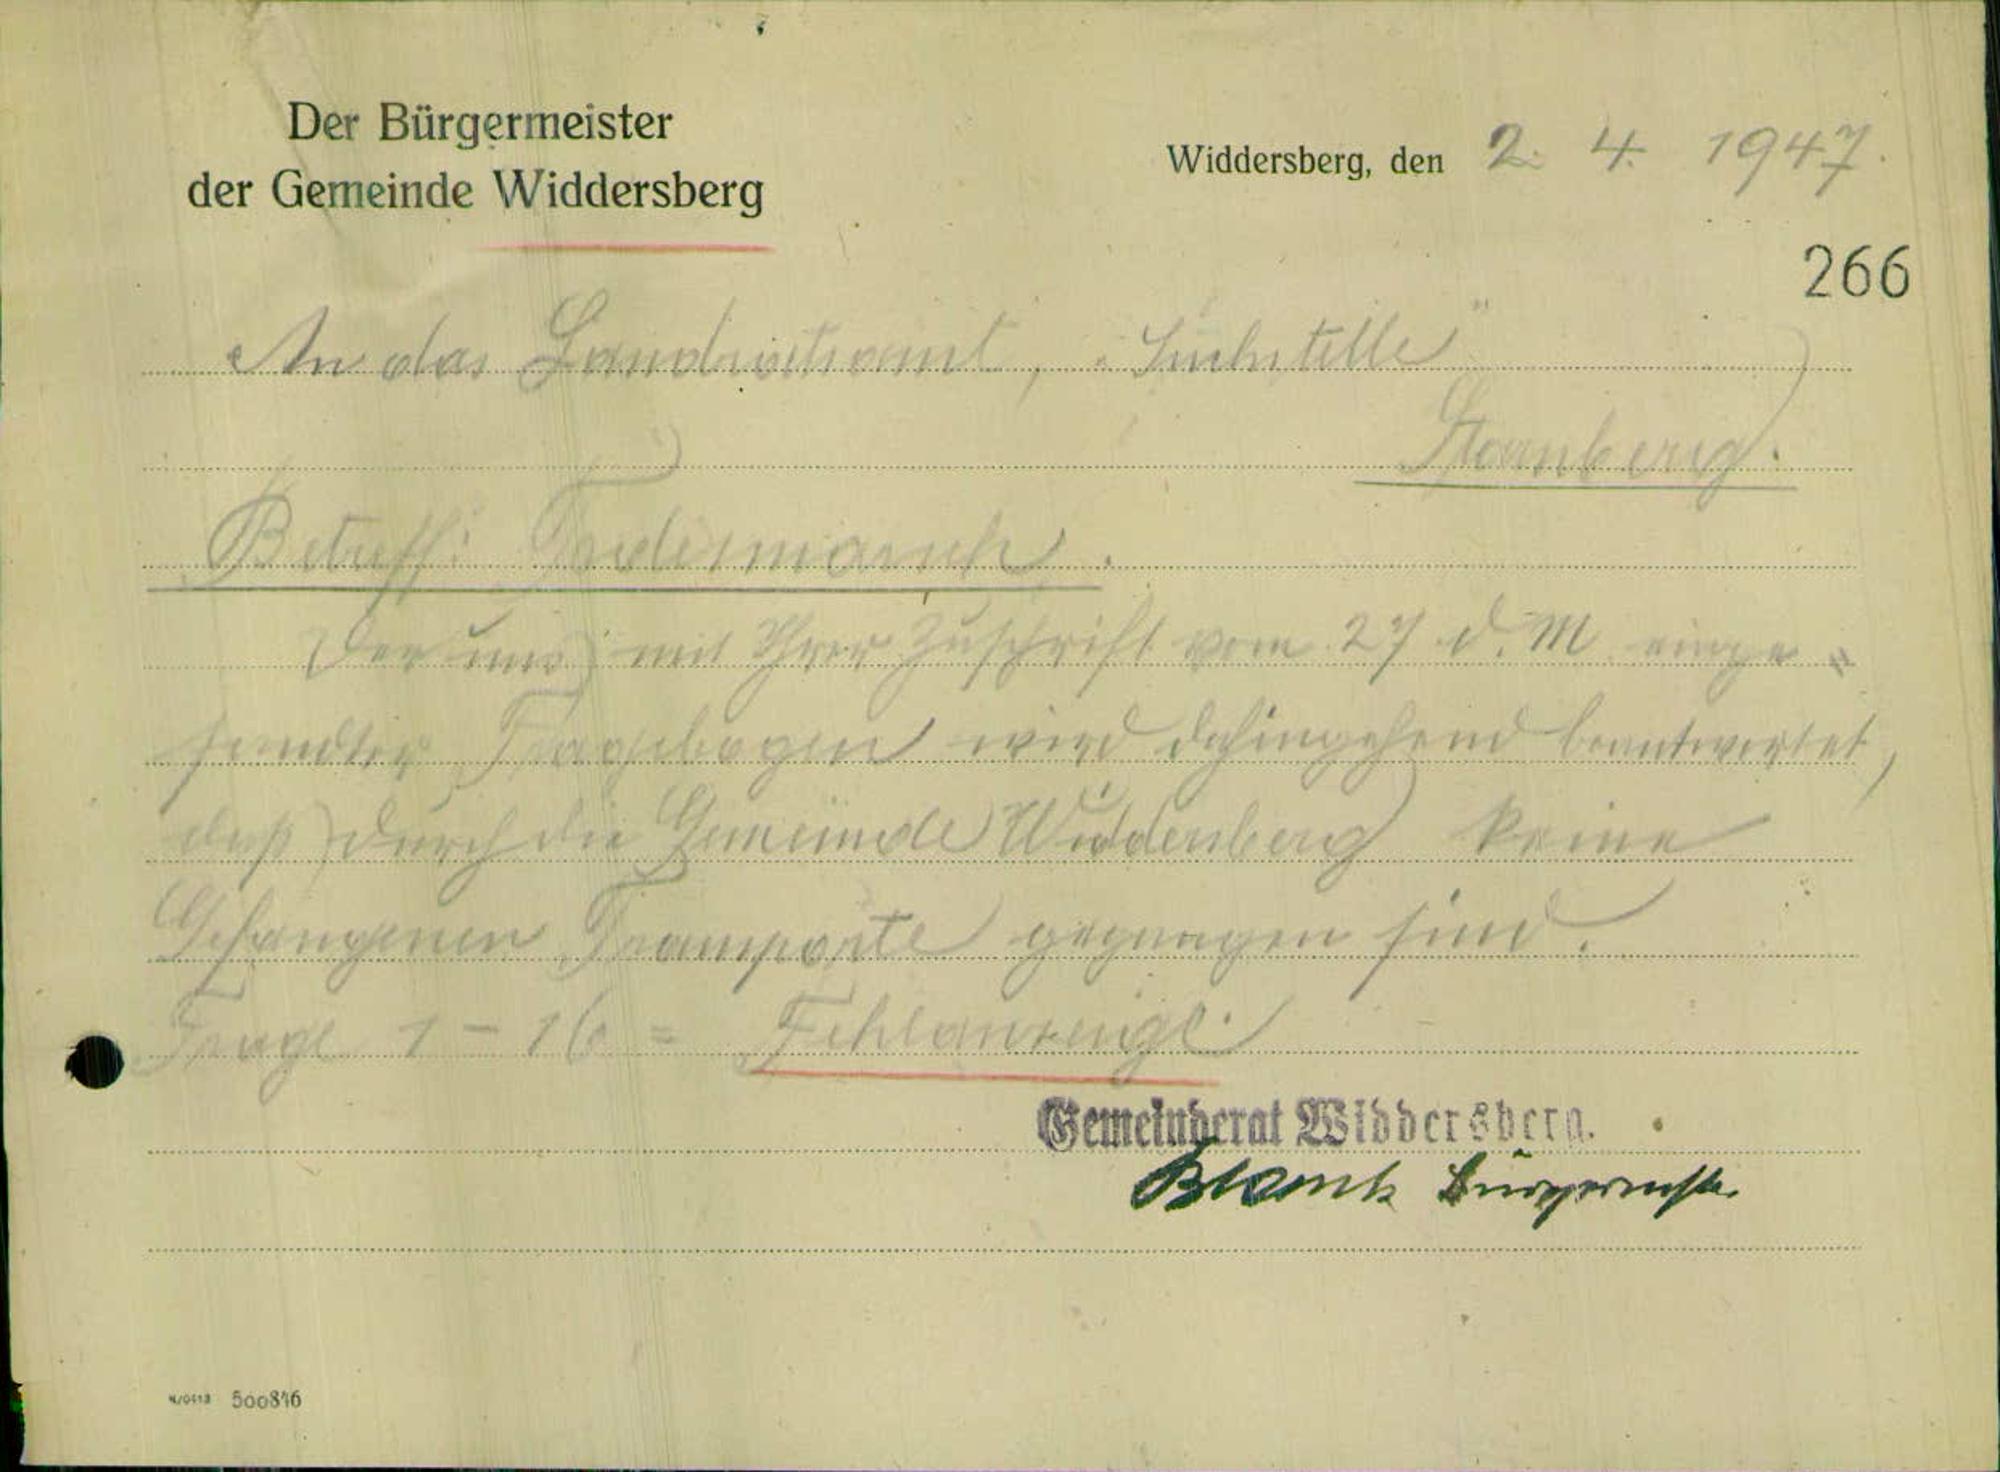 Der Bürgermeister
der Gemeinde Widdersberg
Widdersberg, den 2. 4. 1947.
266
An das Landratsamt, „Suchstelle"
Starnberg.
Betreff: Todesmarsch.
Der uns mit Ihrer Zuschrift vom 27 d. M. einge„
sandter Fragebogen wird dahingehend beantwortet,
daß durch die Gemeinde Widdersberg keine
Gefangenen Transporte gegangen sind.
Frage 1 – 16 = Fehlanzeige.
Gemeinderat Widdersberg.
Blank Bürgermster
500846